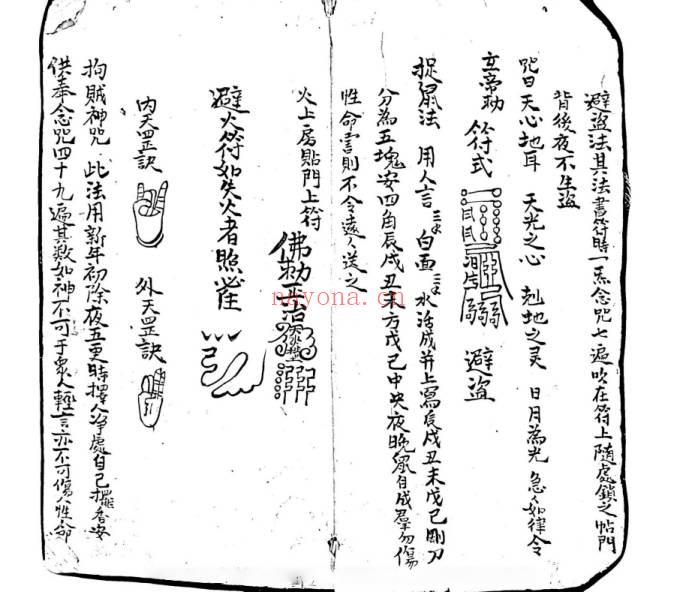 避盜法其法書符時一炁念咒七遍吹在符上随處鎖之帖門
背後夜不生盜
咒曰天心地耳 天光之心 尅地之灵 日月為光 急々如律令
立帝勅 符式 避盜
捉鼠法 用人言三錢 白面三錢 水活成并上寫辰戌丑未戊己剛刀
分為五塊安四角辰戌丑未方戊己中央夜晚鼠自成羣勿傷
性命害則不令遠々送之
火上房貼門上符 佛勅
避火符如失火者照
内天罡訣 外天罡訣
拘賊神咒 此法用新年初除夜五更時擇人净處自己擺香安
供奉念咒四十九遍其数如神不可于衆人輕言亦不可傷人性命
nayona.cn